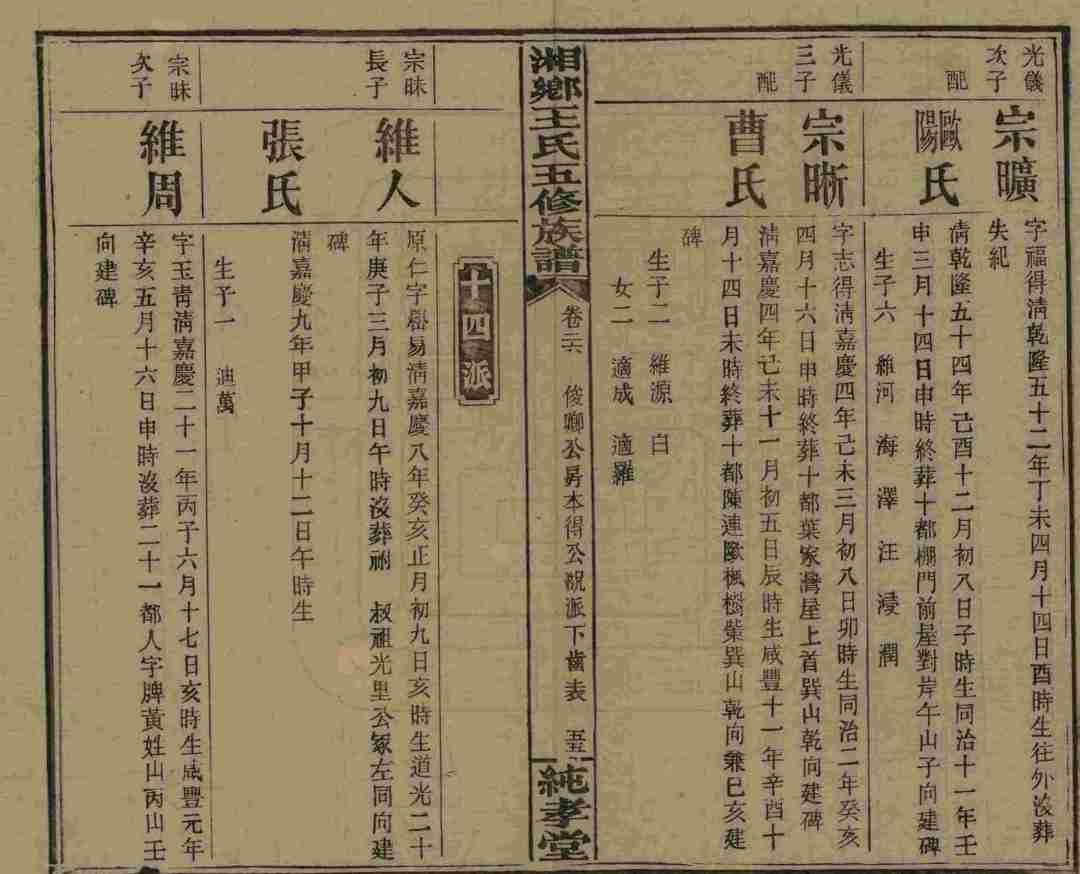 光儀
次子
宗曠
字福得淸乾隆五十二年丁未四月十四日酉時生往外沒葬
失紀
配
歐陽氏
淸乾隆五十四年己酉十二月初八日子時生同治十一年壬
申三月十四日申時終葬十都棚門前屋對岸午山子向建碑
生子六 維河 海 澤 汪 浸 潤
光儀
三子
宗晰
字志得淸嘉慶四年己未三月初八日卯時生同治二年癸亥
四月十六日申時終葬十都葉家灣屋上首巽山乾向建碑
配
曹氏
淸嘉慶四年己未十一月初五日辰時生咸豐十一年辛酉十
月十四日未時終葬十都陳連歐楓樹柴巽山乾向兼巳亥建
碑
生子二 維源 白
女二 適成 適羅
湘鄉王氏五修族譜
卷二六 俊卿公房本得公說派下齒表 五五
純孝堂
十四派
宗昧
長子
維人
原仁字易淸嘉慶八年癸亥正月初九日亥時生道光二十
年庚子三月初九日午時沒葬祔 叔祖光里公冢左同向建
碑
張氏
淸嘉慶九年甲子十月十二日午時生
生子一 迪萬
宗昧
次子
維周
字玉靑淸嘉慶二十一年丙子六月十七日亥時生咸豐元年
辛亥五月十六日申時沒葬二十一都人字牌黃姓山丙山壬
向建碑